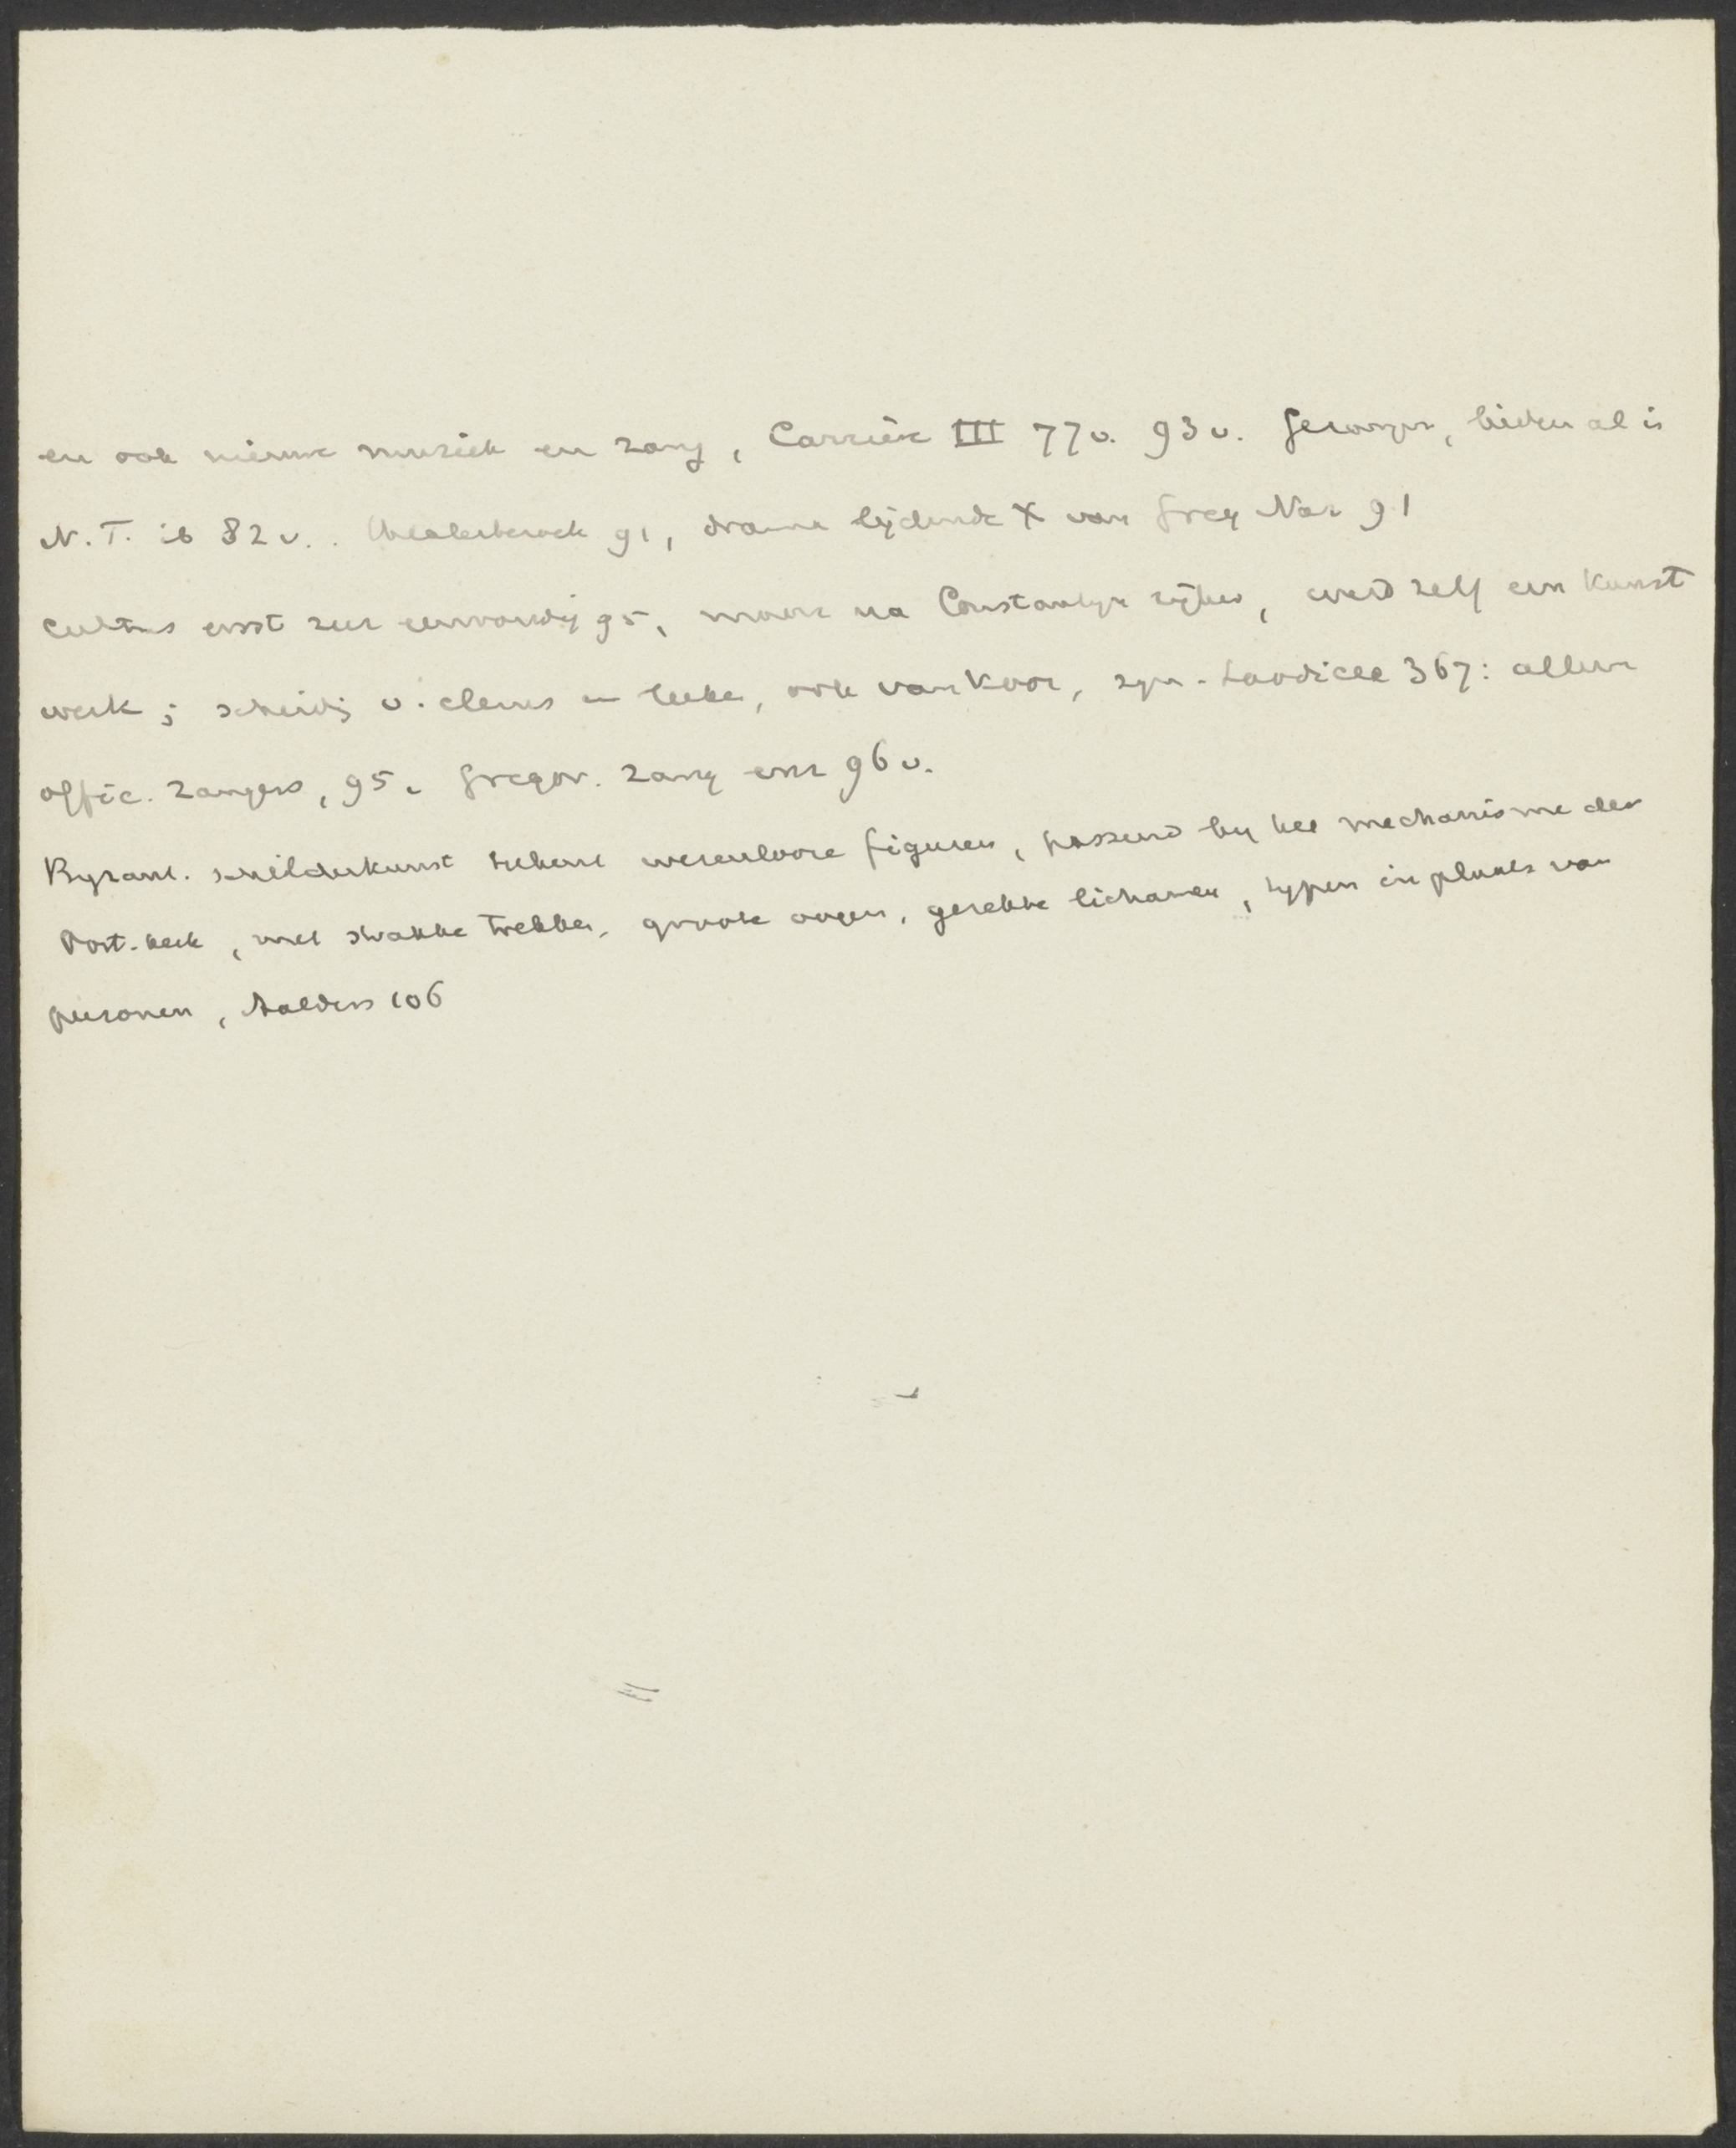 en ook nieuwe muziek en zang, Carrière III 77v. 93v. gezangen, lieden al in
N.T. ib 82v. . 91, drama lijdende X van Greg Naz 91
cultus eerst zeer eenvoudig 95, maar na Constantijn rijker, werd zelf een kunst
werk; scheidg v. clerus en leeken, ook van koor, syn. Laodicea 367: alleen
offic. zangers, 95. Gregor. zang enz 96v.
Byzant. schilderkunst tekent wezenlooze figuren, passend bij het mechanisme der
Oost. kerk, met strakke trekken, groote oogen, gerekte lichamen, typen in plaats van
personen, Aalders 106